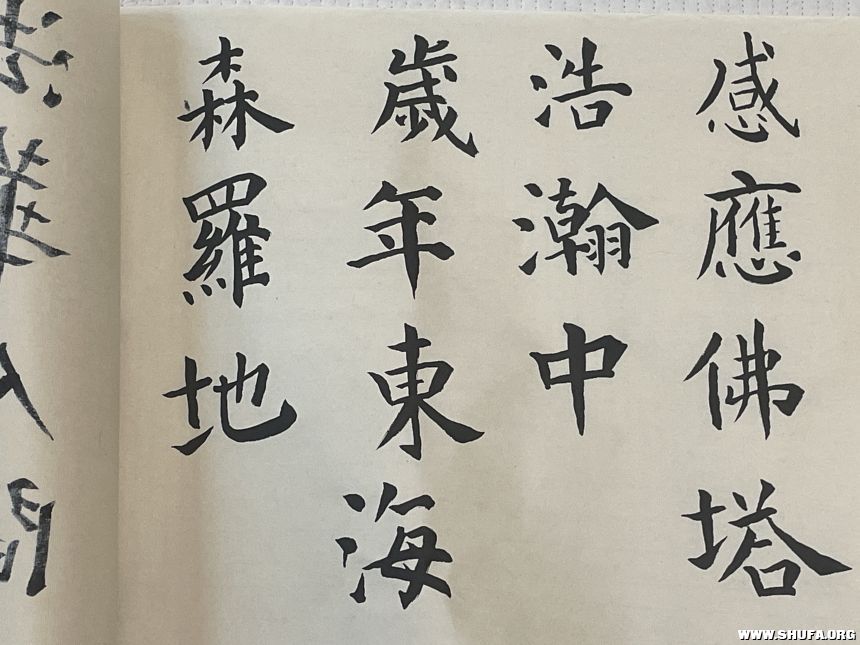 感應佛塔
浩瀚中
歲年東海
森羅地
WWW.SHUFA.ORG